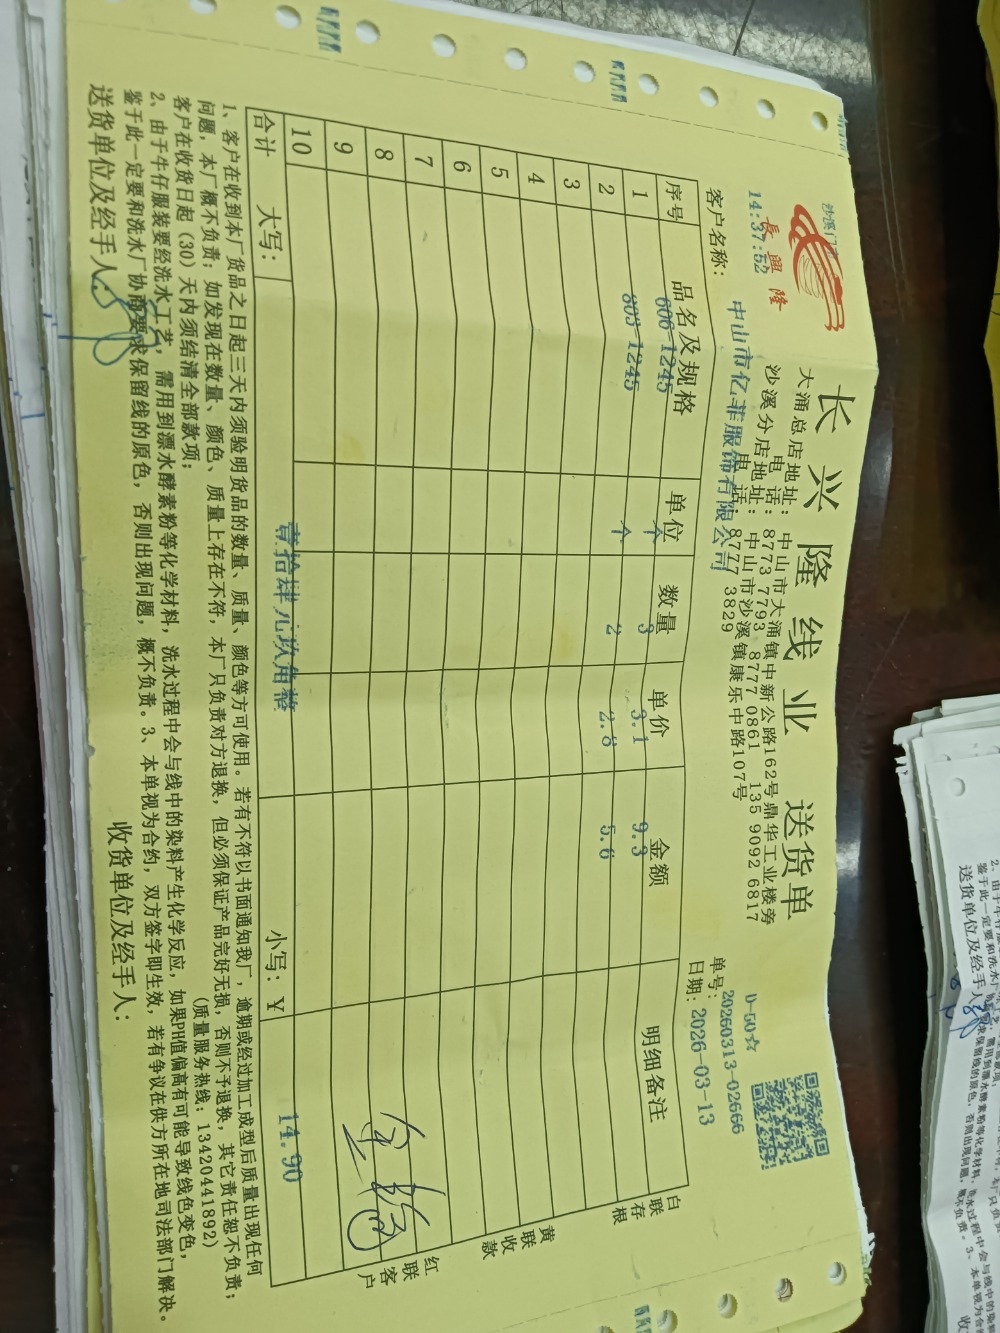 沙溪门市
長興隆
14:37:52
长兴隆线业 送货单
大涌总店地址: 中山市大涌镇中新公路162号鼎华工业楼旁
电 话: 8773 7793 8777 0861 135 9092 6817
沙溪分店地址: 中山市沙溪镇康乐中路107号
电 话: 8777 3829
D-50☆
单号: 20260313-02666
客户名称: 中山市亿菲服饰有限公司
日期: 2026-03-13
序号 品名及规格 单位 数量 单价 金额 明细备注
1 606-1245 个 3 3.1 9.3
2 803-1245 个 2 2.8 5.6
3
4
5
6
7
8
9
10
合计 大写: 壹拾肆元玖角整 小写: ¥ 14.90
白联存根
黄联收款
红联客户
1、客户在收到本厂货品之日起三天内须验明货品的数量、质量、颜色等方可使用。若有不符以书面通知我厂,逾期或经过加工成型后质量出现任何
问题,本厂概不负责;如发现在数量、颜色、质量上存在不符,本厂只负责对方退换,但必须保证产品完好无损,否则不予退换,其它责任恕不负责;
客户在收货日起(30)天内须结清全部款项; (质量服务热线:13420441892)
2、由于牛仔服装要经洗水工艺,需用到漂水酵素粉等化学材料,洗水过程中会与线中的染料产生化学反应,如果PH值偏高有可能导致线色变色,
鉴于此一定要和洗水厂协商要求保留线的原色,否则出现问题,概不负责。3、本单视为合约,双方签字即生效,若有争议在供方所在地司法部门解决。
送货单位及经手人: 收货单位及经手人: